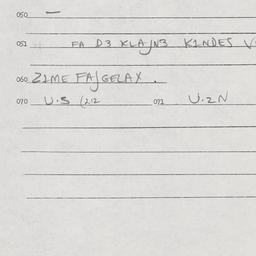 050 —
051 FA D3 KLAJN3 KINDES V
060 ZIME FAJGELAX .
070 U.S (212 071 U.ZN